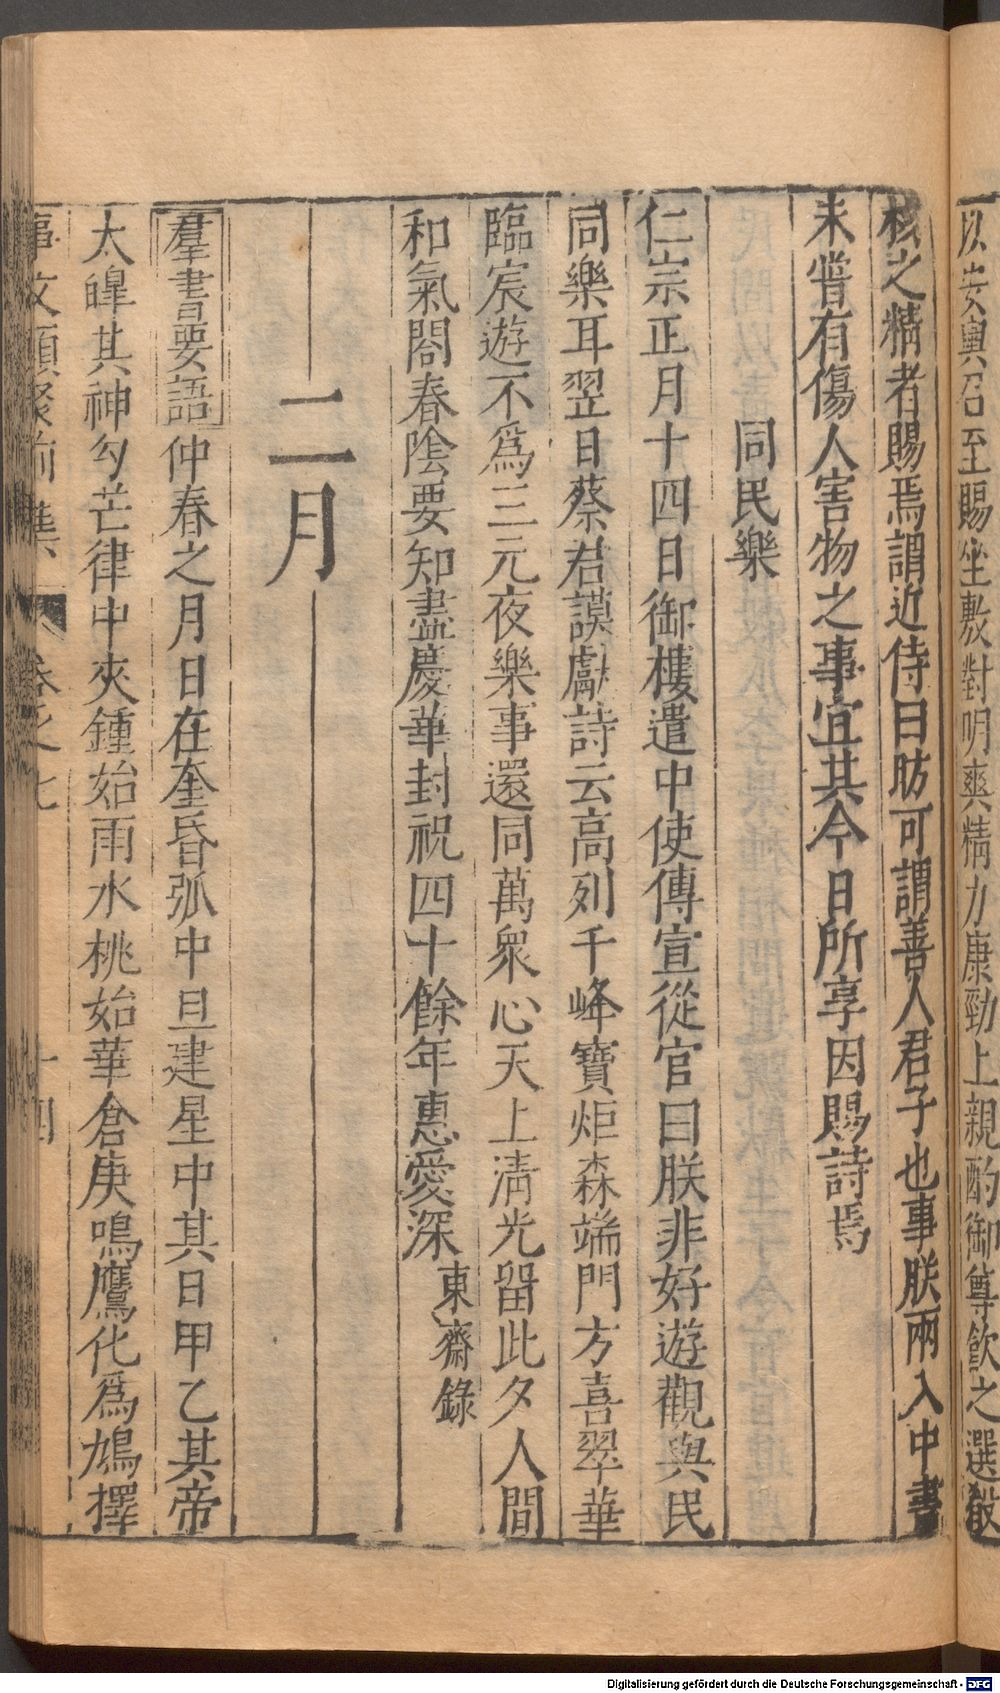 以安輿召至賜坐敷對明爽精力康勁上親酌御尊飲之選殽
核之精者賜焉謂近侍曰昉可謂善人君子也事朕兩入中書
未甞有傷人害物之事宜其今日所享因賜詩焉
同民樂
仁宗正月十四日御樓遣中使傳宣從官曰朕非好遊觀與民
同樂耳翌日蔡君謨獻詩云高列千峰寶炬森端門方喜翠華
臨宸遊不爲三元夜樂事還同萬衆心天上清光留此夕人間
和氣閤春陰要知盡慶華封祝四十餘年惠愛深 東齋錄
二月
羣書要語 仲春之月日在奎昏弧中旦建星中其日甲乙其帝
太皥其神勾芒律中夾鍾始雨水桃始華倉庚鳴鷹化爲鳩擇
事文類聚前集 卷之七 十四
Digitalisierung gefördert durch die Deutsche Forschungsgemeinschaft - DFG